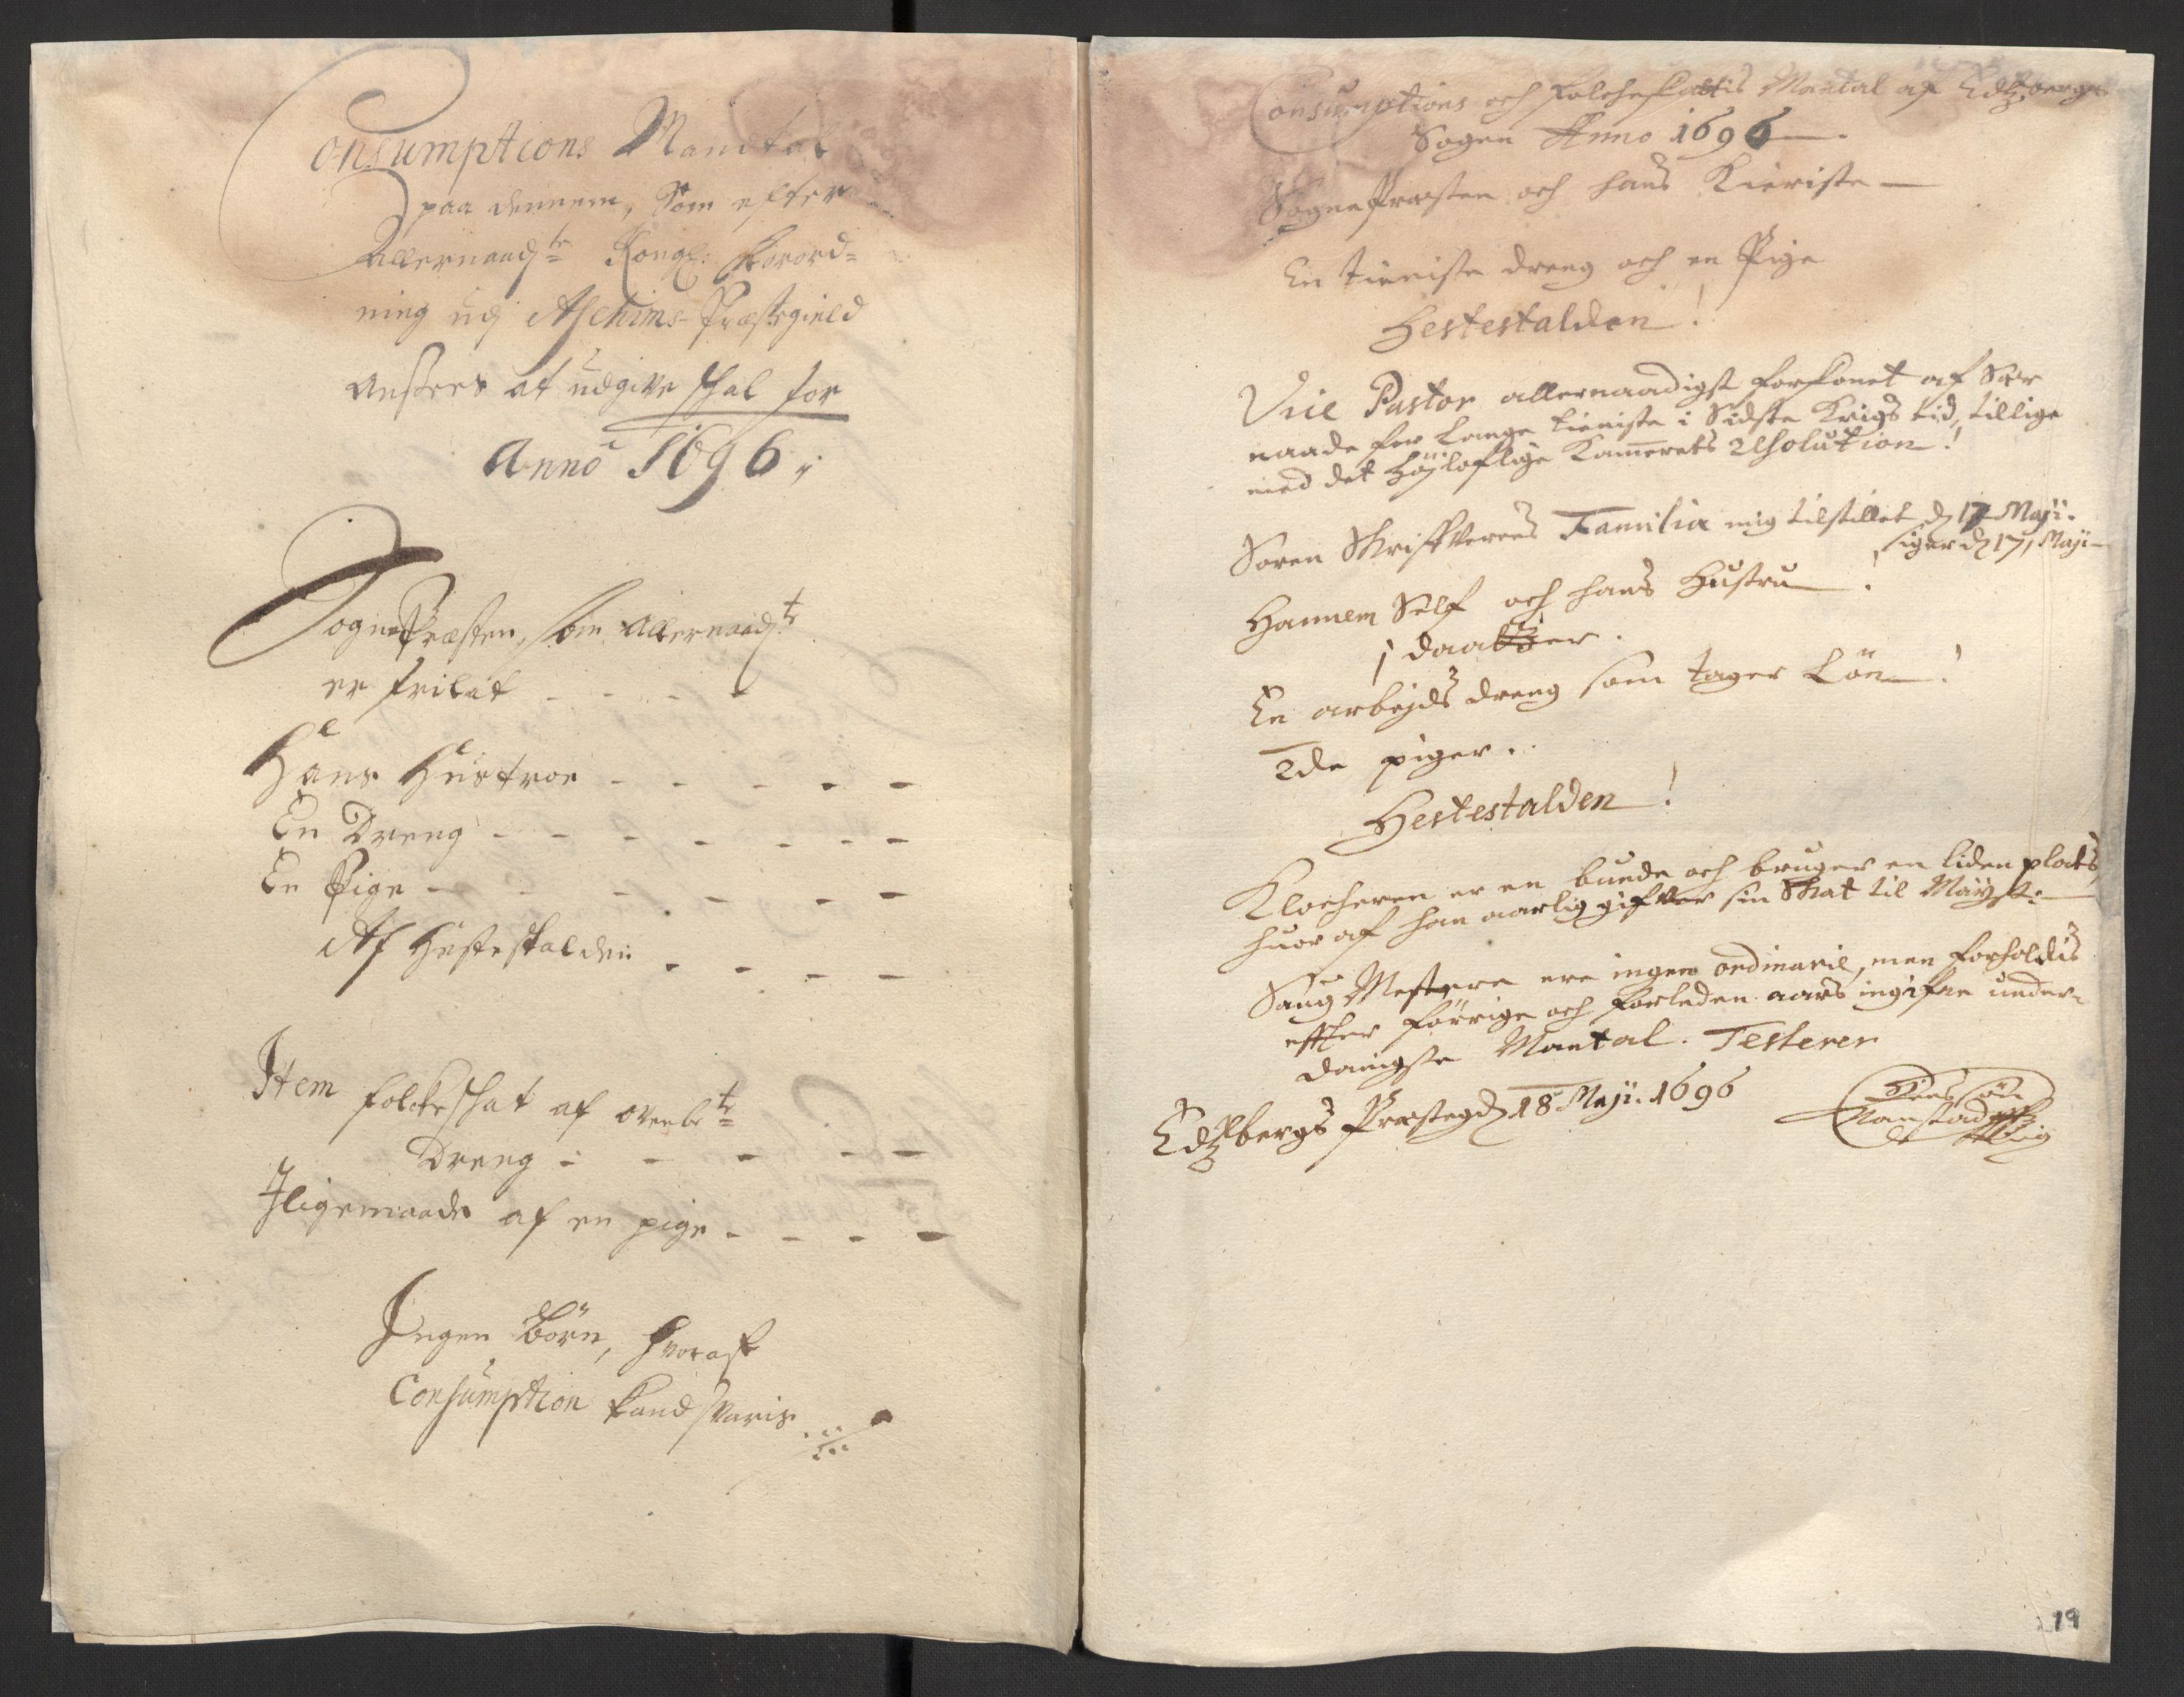 Consumptions Mandtal
paa dennem, Som efter
Allernaadste Kongl: Forord=
ning udj Aschims Præstegield
ansees at udgive skal for
Anno 1696
SognePræsten, som allernaadte
er frilat - - - -
Hans Hustroe - - - - -
En Dreng - - - - - - -
En Pige - - - - - -
Af Hestestalden - - - -
Item folcke skat af ovenbte
Dreng - - - - -
Iligemaade af en pige - - - -
Ingen Börn, hvoraf
Consumption kand svaris
Consumptions och Folcheskattis Mantal af Edtzbergs
Sogen Anno 1696
SognePræsten och hans Kieriste
En tieniste dreng och en Pige
Hestestalden!
Vice Pastor allernaadigst forskonet af Sær
naade for lange tieniste i Sidste Krigs tid, tillige
med det Höjloflige Kammerets Resolution!
Soren Skrifverens Familia mig tilstillet d 17 Maji.
siger d 17, Maji
Hannem Self och hans Hustru
1 daatter.
En arbejds dreng som tager Lön!
2de piger.
Hestestalden!
Klocheren er en buede och bruger en liden plads,
huor af han aarlig gifver sin Skat til Mayst:
Sang Mestere ere ingen ordinarie, men forholdis
effter forrige och forleden aars ingifne under=
danigste Mantal. Testerer
Edtzbergs Præstegd 18 Maji. 1696
19